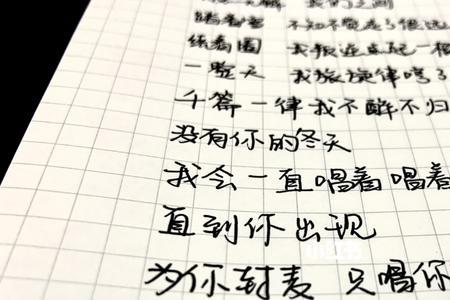 我们之间
不知不觉走了很远
绕着圈 我
一整天 我 旋律哼了
千篇一律我不醉不归
没有你的冬天
我会一直唱着 唱着
直到你出现
为你封麦 只唱你